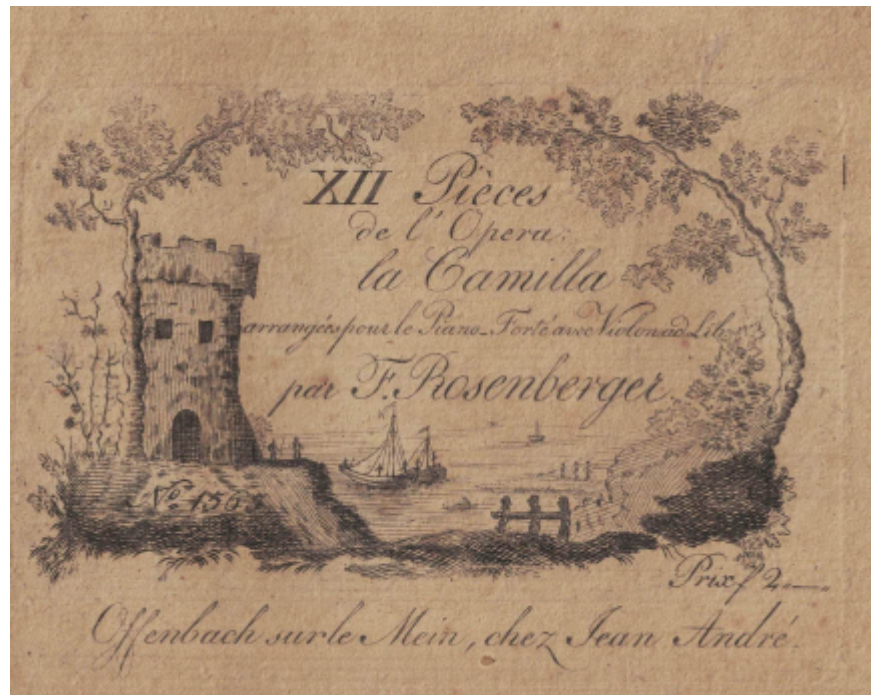 XII Pièces
de l'Opera:
la Camilla
arrangées pour le Piano-Forté avec Violon ad Lib:
par F. Rosenberger
No. 156
Prix f 2.—
Offenbach sur le Mein, chez Jean André.